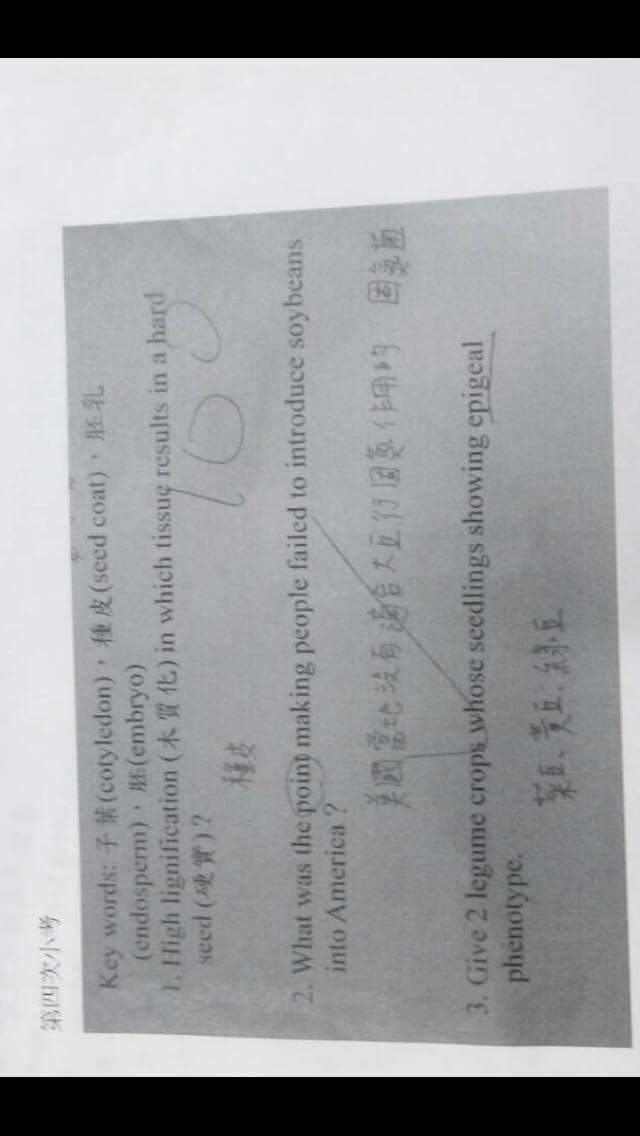 第四次小考
Key words: 子葉(cotyledon)，種皮(seed coat)，胚乳
(endosperm)，胚(embryo)
1. High lignification (木質化) in which tissue results in a hard
seed (硬實)?
種皮
100
2. What was the point making people failed to introduce soybeans
into America?
美國當地沒有適合大豆行固氮作用的 固氮菌
3. Give 2 legume crops whose seedlings showing epigeal
phenotype.
菜豆、黃豆、綠豆